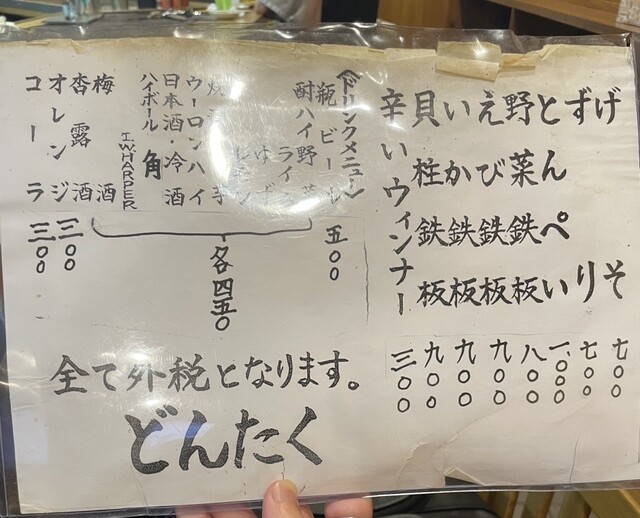 げそ 七〇〇
ずり 七〇〇
とんぺい 一、〇〇〇
野菜鉄板 八〇〇
えび鉄板 九〇〇
いか鉄板 九〇〇
貝柱鉄板 九〇〇
辛いウィンナー 三〇〇
《ドリンクメニュー》
瓶ビール 五〇〇
酎ハイ
ライム
ゆず
レモン
芋
ウーロンハイ
日本酒・冷酒
ハイボール 角
I.W.HARPER
梅酒
杏露酒
各四五〇
オレンジ 三〇〇
コーラ 三〇〇
全て外税となります。
どんたく